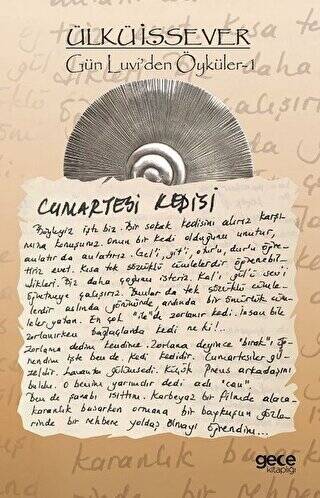 ÜLKÜ İSSEVER
Gün Luvi'den Öyküler-1
CUMARTESİ KEDİSİ
Böyleyiz işte biz. Bir sokak kedisini alırız karşı-
mıza konuşuruz. Onun bir kedi olduğunu unutur,
anlatır da anlatırız. Gel'i, git'i, otur'u, dur'u öğre-
tiriz evet. Kısa tek sözcüklü cümlelerdir öğrenebil-
dikleri. Biz daha çoğunu isteriz. Kal'ı gül'ü sev'i
öğretmeye çalışırız. Bunlar da tek sözcüklü cümle-
lerdir aslında görünümde, ardında bir ömürlük cüm-
leler yatan. En çok "ile"de zorlanır kedi. İnsan bile
zorlanırken bağlaçlarda kedi ne ki!..
Zorlama dedim kendime. Zorlama deyince "bırak"ı öğ-
rendim işte ben de. Kedi kedidir. Cumartesiler gü-
zeldir. Lavanta gülümsedi. Küçük Prens arkadaşını
buldu. O benim yarımdır dedi adı "can".
Ben de şarabı ısıttım. Karbeyaz bir filmde alaca-
karanlık basarken ormana bir baykuşun gözle-
rinde bir rehbere yoldaş olmayı öğrendim...
gece
kitaplığı
karanlık